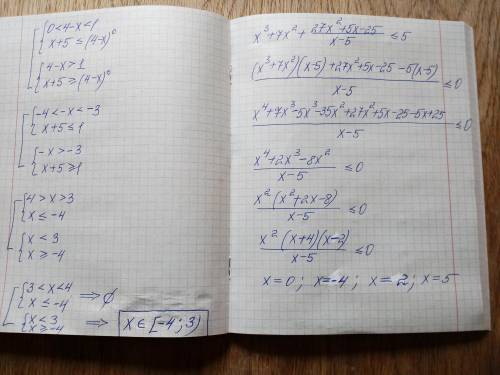 0 < 4-x < 1
x+5 ≤ (4-x)⁰
4-x > 1
x+5 ≥ (4-x)⁰
-4 < -x < -3
x+5 ≤ 1
-x > -3
x+5 ≥ 1
4 > x > 3
x ≤ -4
x < 3
x ≥ -4
3 < x < 4
x ≤ -4 ⇒ ∅
x < 3
x ≥ -4 ⇒ x ∈ [-4; 3)
x³+7x² + (27x²+5x-25)/(x-5) ≤ 5
((x³+7x²)(x-5)+27x²+5x-25-5(x-5))/(x-5) ≤ 0
(x⁴+7x³-5x³-35x²+27x²+5x-25-5x+25)/(x-5) ≤ 0
(x⁴+2x³-8x²)/(x-5) ≤ 0
(x²(x²+2x-8))/(x-5) ≤ 0
(x²(x+4)(x-2))/(x-5) ≤ 0
x=0; x=-4; x=2; x=5